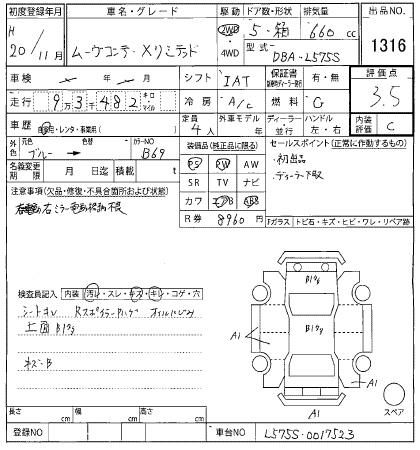 初度登録年月 車名・グレード 駆動 ドア数・形状 排気量 出品NO.
H 20/11月 ムーヴコンテ・Xリミテッド 2WD ・ 4WD 5・箱 660 cc 1316
型式 DBA-L575S
車検 年 月 シフト IAT 保証書 有・無 評価点
走行 9万3千482 キロ マイル 冷房 A/C 燃料 G 3.5
車歴 自家用・レンタ・事業用( ) 定員 4人 外車モデル 年 ディーラー 並行 ハンドル 左・右 内装評価 C
外色 元色 ブルー → 色替 カラーNO B69
装備品(純正品に限る) セールスポイント(正常に作動するもの)
名義変更期限 月 日迄 積載 t
PS PW AW ・初出品
SR TV ナビ ・ディーラー下取
注意事項(欠品・修復・不具合箇所および状態)
カワ エアB ABS
右ミラー電動格動不良
R券 8960円
Fガラス トビ石・キズ・ヒビ・ワレ・リペア跡
検査員記入 内装 汚れ・スレ・キズ・キレ・コゲ・穴
シートヨレ Rスポイラーハゲ オイルにじみ
上面B179
ネジ-B
B179
B179
A1
A1
A1
スペア
長さ cm 幅 cm 高さ cm
登録NO 車台NO L575S-0017523